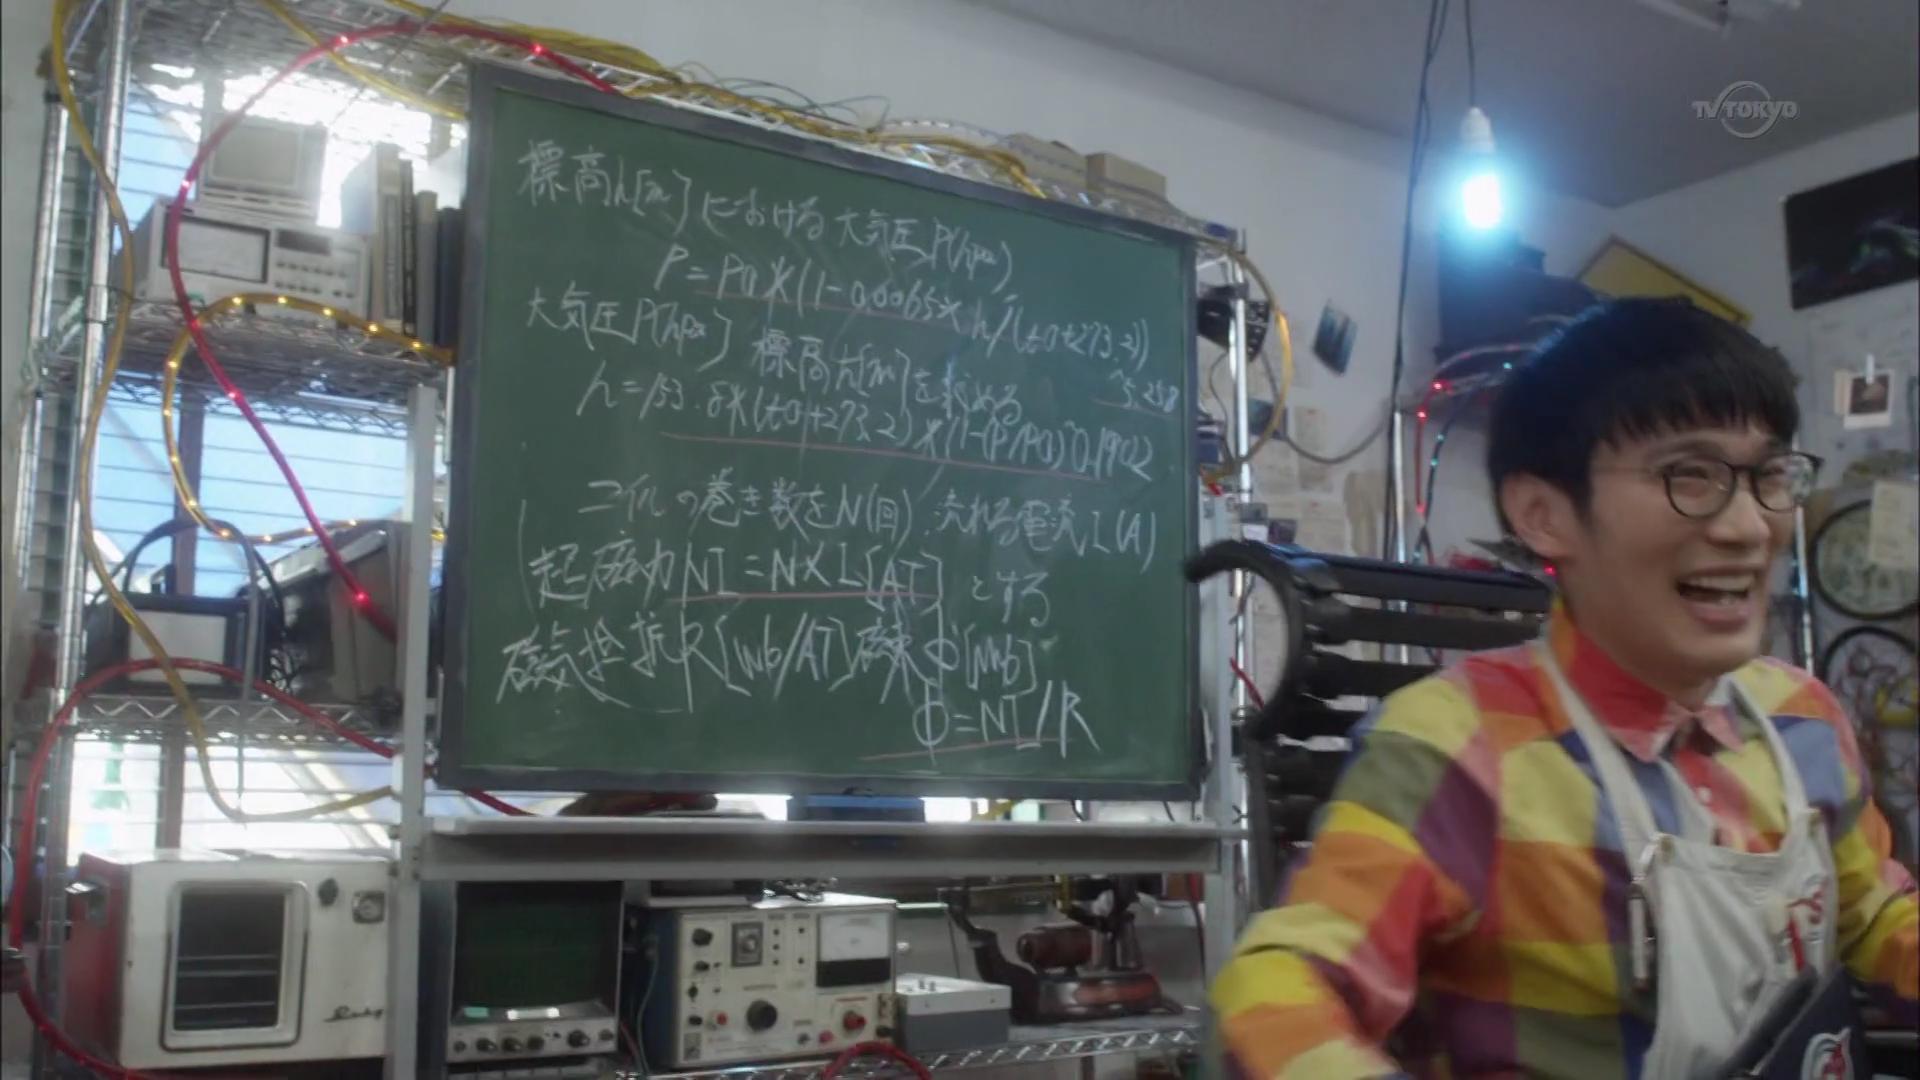 標高h[m]における大気圧P(hpa)
P=P0*(1-0.0065*h/(t0+273.2))
^5.258
大気圧P[hpa] 標高h[m]を求める
h=153.8*(t0+273.2)*(1-(P/P0)^0.1902
コイルの巻き数をN(回).流れる電流I(A)
起磁力NI=N×I[AT]とする
磁気抵抗R[wb/AT]磁束Φ[wb]
Φ=NI/R
TV TOKYO